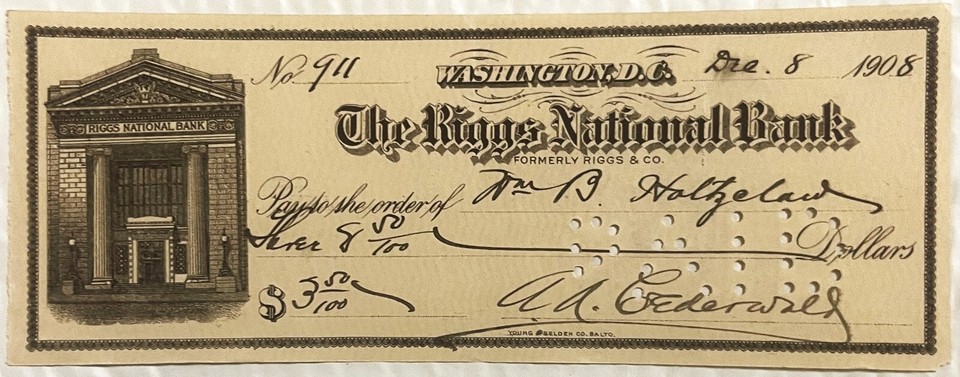 No. 911 WASHINGTON, D.C. Dec. 8 1908
RIGGS NATIONAL BANK
The Riggs National Bank
FORMERLY RIGGS & CO.
Pay to the order of Wm B. Holtzclaw
Three & 50/100 Dollars
$ 3 50/100 A. A. Cederwald
YOUNG & SELDEN CO. BALTO.